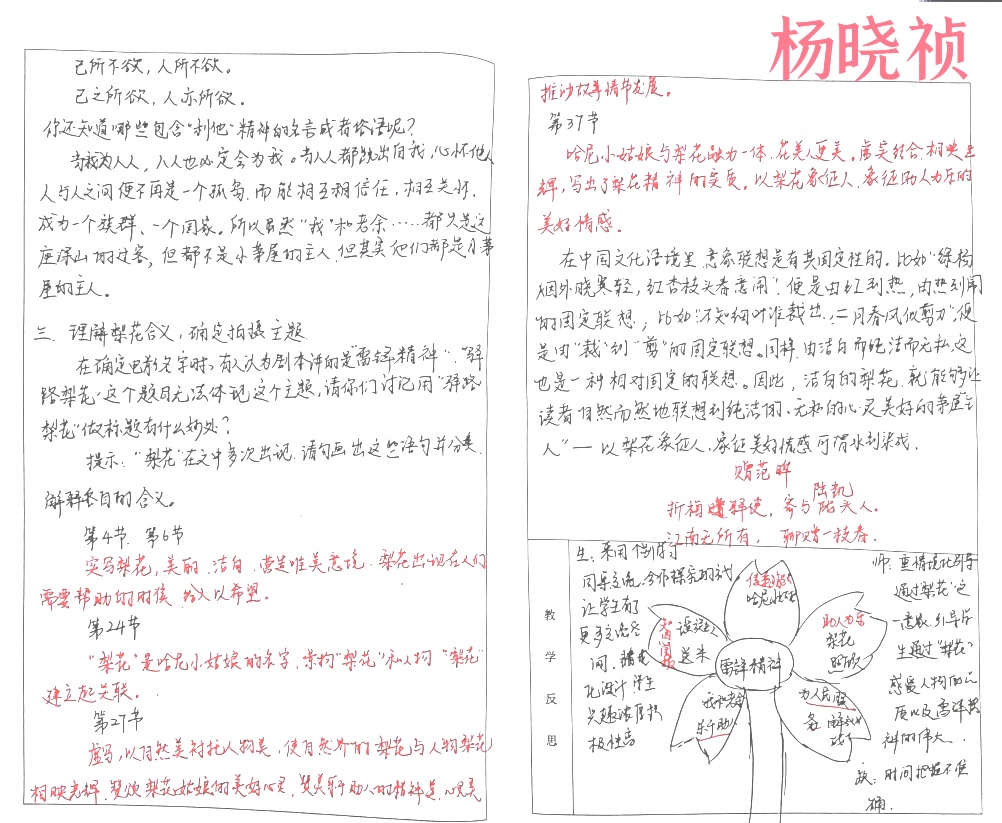 杨晓祯
己所不欲，人所不欲。
己之所欲，人亦所欲。
你还知道哪些包含"利他"精神的名言或者俗语呢？
当我为人人，人人也必定会为我。当人人都跳出自我，心怀他人
人与人之间便不再是一个孤岛，而能相互相信任，相互关怀，
成为一个族群、一个国家。所以虽然"我"和老余……都只是这
座深山的过客，但都不是小茅屋的主人，但其实他们都是小茅
屋的主人。
三、理解梨花含义，确定拍摄主题
在确定电影名字时，有人认为剧本讲的是"雷锋精神"，"驿
路梨花"这个题目无法体现这个主题，请你们讨论用"驿路
梨花"做标题有什么妙处？
提示："梨花"在文中多次出现，请勾画出这些语句并分类，
解释各自的含义。
第4节、第6节
实写梨花，美丽、洁白，营造唯美意境，梨花出现在人们
需要帮助的时候，给人以希望。
第24节
"梨花"是哈尼小姑娘的名字，景物"梨花"和人物"梨花"
建立起关联。
第27节
虚写，以自然美衬托人物美，使自然界的梨花与人物梨花
相映光辉，赞颂梨花姑娘的美好心灵，赞美乐于助人的精神是
推动故事情节发展。
第37节
哈尼小姑娘与梨花融为一体，花美人更美。虚实结合，相映生
辉，写出了梨花精神的实质。以梨花象征人，象征助人为乐的
美好情感。
在中国文化语境里，意象联想是有其固定性的。比如"绿杨
烟外晓寒轻，红杏枝头春意闹"，便是由红到热，由热到闹
的固定联想，比如"不知细叶谁裁出，二月春风似剪刀"，便
是由"裁"到"剪"的固定联想。同样，由洁白而纯洁而无私，这
也是一种相对固定的联想。因此，洁白的梨花，就能够让
读者自然而然地联想到纯洁的、无私的心灵美好的茅屋"主
人"——以梨花象征人，象征美好情感，可谓水到渠成。
赠范晔
陆凯
折梅逢驿使，寄与陇头人。
江南无所有，聊赠一枝春。
教
学
反
思
生：采用
同桌交流，合作探究的方式，
让学生有了
更多交流空
间，
化设计，学生
兴趣浓厚，积
极性高
哈尼
助人为乐
梨花
照顾
送米
雷锋精神
我和老余
乐于助人
为人民服
务
师：
通过"梨花"这
一意象，引导学
生通过"梨花"
感受人物的品
质以及雷锋精
神的伟大。
缺：时间把握不准
确。